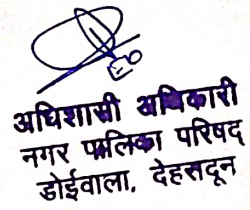 अधिशासी अधिकारी
नगर पालिका परिषद
डोईवाला, देहरादून